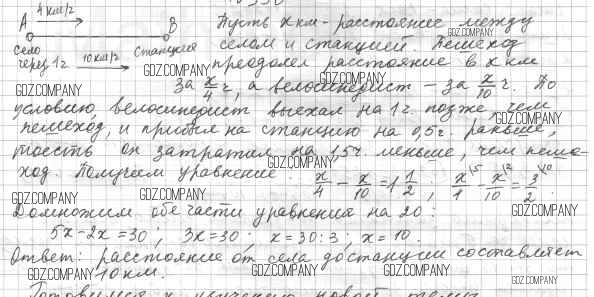 4 км/ч
A B Пусть x км - расстояние между
село Станция селом и станцией. Пешеход
через 1 ч 10 км/ч преодолел расстояние в x км
GDZ.COMPANY
GDZ.COMPANY
GDZ.COMPANY
за x/4 ч, а велосипедист - за x/10 ч. По
GDZ.COMPANY
условию, велосипедист выехал на 1 ч. позже, чем
GDZ.COMPANY
пешеход, и пришёл на станцию на 0,5 ч. раньше,
тоесть он затратил на 1,5 ч. меньше, чем пеше-
GDZ.COMPANY
ход. Получим уравнение: x/4 - x/10 = 1 1/2; x/4 - x/10 = 3/2.
GDZ.COMPANY GDZ.COMPANY
Домножим обе части уравнения на 20:
GDZ.COMPANY
5x - 2x = 30; 3x = 30; x = 30 : 3; x = 10.
Ответ: расстояние от села до станции составляет
10 км.
GDZ.COMPANY GDZ.COMPANY GDZ.COMPANY